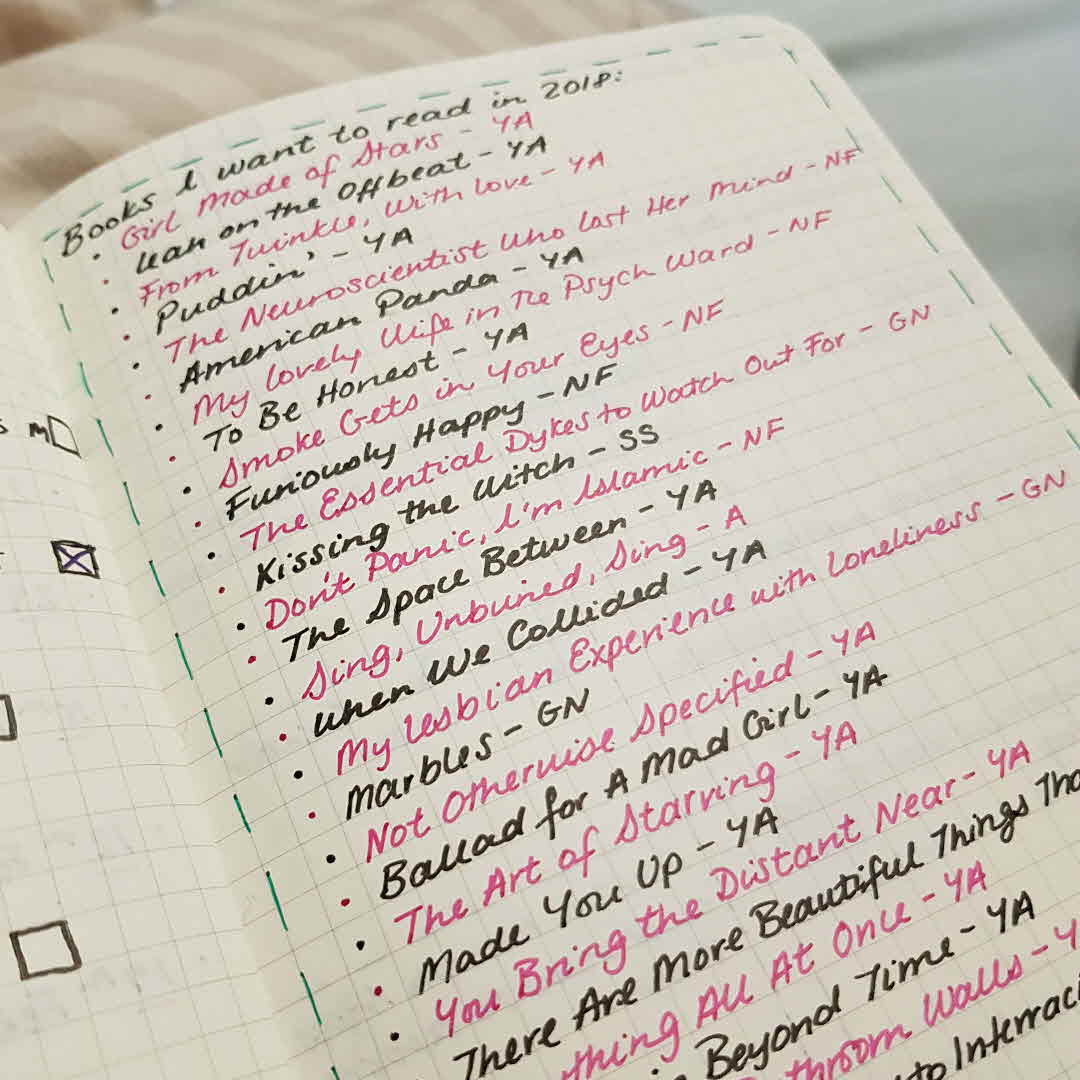 Books I want to read in 2018:
• Girl Made of Stars - YA
• Leah on the Offbeat - YA
• From Twinkle, With Love - YA
• Puddin' - YA
• The Neuroscientist Who Lost Her Mind - NF
• American Panda - YA
• My Lovely Wife in The Psych Ward - NF
• To Be Honest - YA
• Smoke Gets in Your Eyes - NF
• Furiously Happy - NF
• The Essential Dykes to Watch Out For - GN
• Kissing the Witch - SS
• Don't Panic, I'm Islamic - NF
• The Space Between - YA
• Sing, Unburied, Sing - A
• When We Collided - YA
• My Lesbian Experience with Loneliness - GN
• Marbles - GN
• Not Otherwise Specified - YA
• Ballad for A Mad Girl - YA
• The Art of Starving - YA
• Made You Up - YA
• You Bring the Distant Near - YA
There Are More Beautiful Things Tha
thing All At Once - YA
Beyond Time - YA
throom Walls - Y
to Interraci